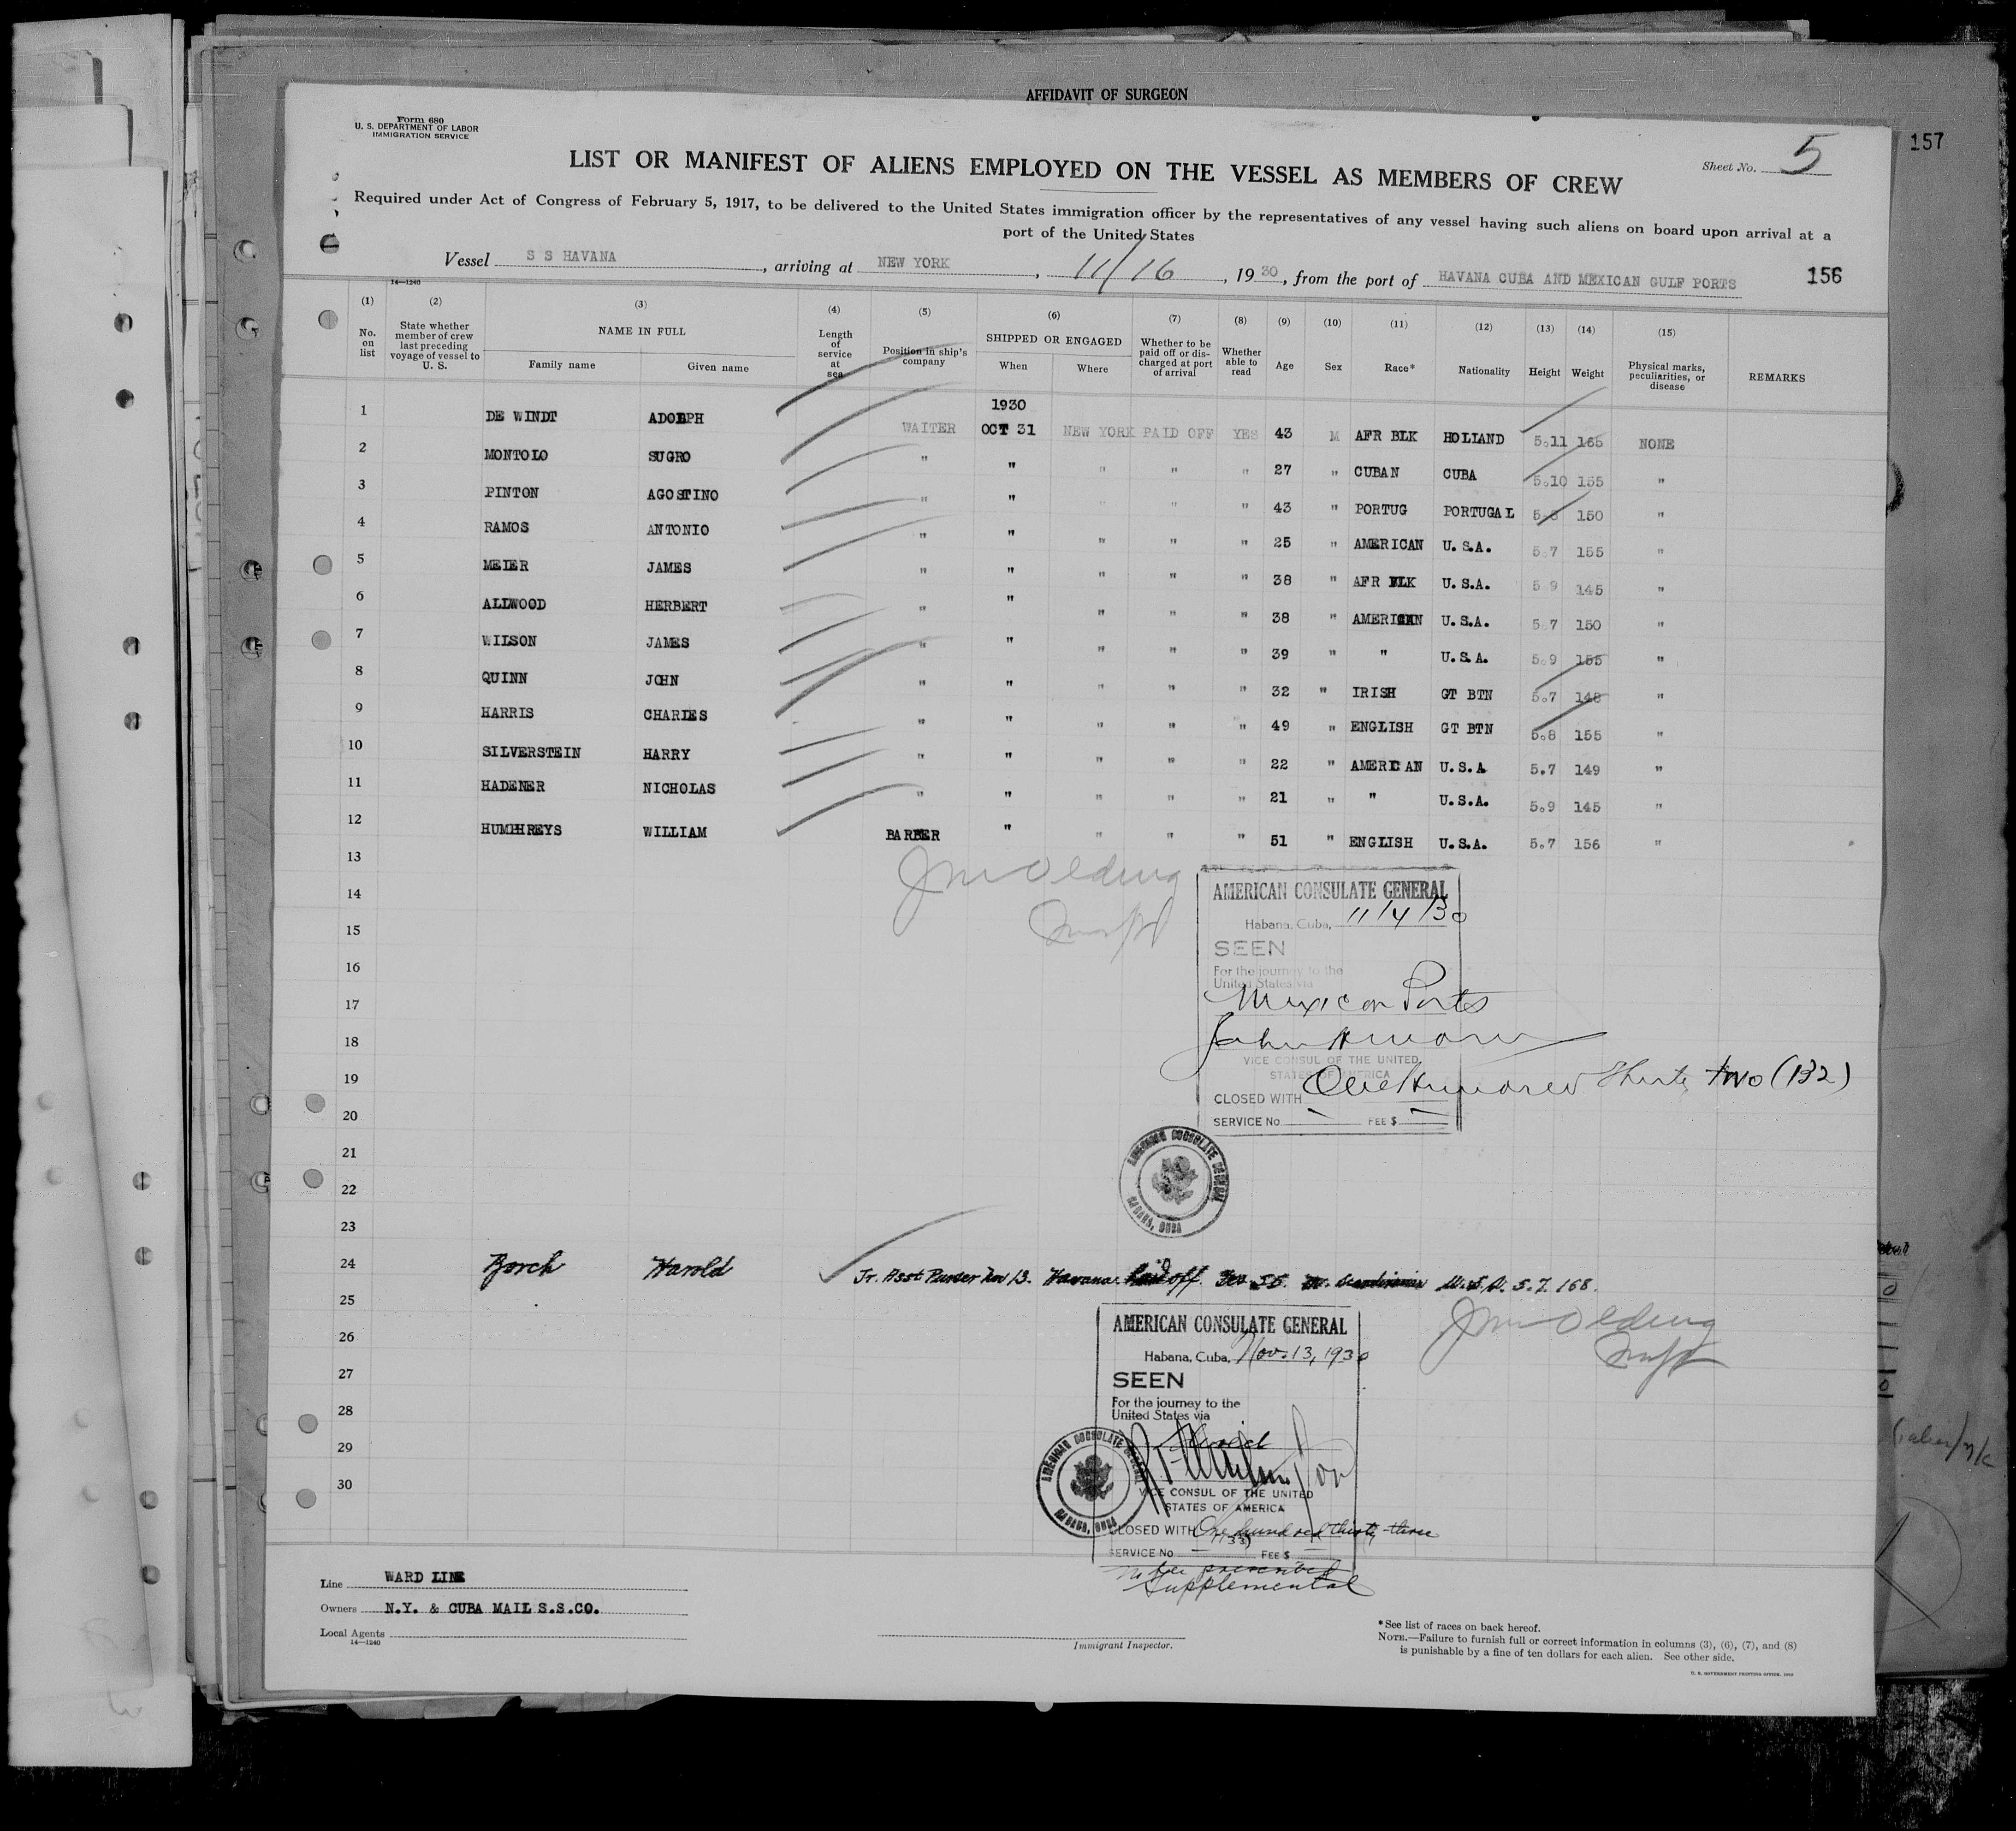 AFFIDAVIT OF SURGEON
157
Form 680
U. S. DEPARTMENT OF LABOR
IMMIGRATION SERVICE
Sheet No. 5
LIST OR MANIFEST OF ALIENS EMPLOYED ON THE VESSEL AS MEMBERS OF CREW
Required under Act of Congress of February 5, 1917, to be delivered to the United States immigration officer by the representatives of any vessel having such aliens on board upon arrival at a
port of the United States
Vessel S S HAVANA, arriving at NEW YORK, 11/16, 1930, from the port of HAVANA CUBA AND MEXICAN GULF PORTS 156
14—1240
(1) (2) (3) (4) (5) (6) (7) (8) (9) (10) (11) (12) (13) (14) (15)
No. on list
State whether member of crew last preceding voyage of vessel to U. S.
NAME IN FULL
Family name
Given name
Length of service at sea
Position in ship's company
SHIPPED OR ENGAGED
When
Where
Whether to be paid off or discharged at port of arrival
Whether able to read
Age
Sex
Race*
Nationality
Height
Weight
Physical marks, peculiarities, or disease
REMARKS
1930
1 DE WINDT ADOLPH WAITER OCT 31 NEW YORK PAID OFF YES 43 M AFR BLK HOLLAND 5.11 165 NONE
2 MONTOLO SUGRO " " " " " 27 " CUBAN CUBA 5.10 155 "
3 PINTON AGOSTINO " " " " " 43 " PORTUG PORTUGAL 5.8 150 "
4 RAMOS ANTONIO " " " " " 25 " AMERICAN U.S.A. 5.7 155 "
5 MEIER JAMES " " " " " 38 " AFR BLK U.S.A. 5 9 145 "
6 ALLWOOD HERBERT " " " " " 38 " AMERICAN U.S.A. 5.7 150 "
7 WILSON JAMES " " " " " 39 " " U.S.A. 5.9 155 "
8 QUINN JOHN " " " " " 32 " IRISH GT BTN 5.7 148 "
9 HARRIS CHARLES " " " " " 49 " ENGLISH GT BTN 5.8 155 "
10 SILVERSTEIN HARRY " " " " " 22 " AMERICAN U.S.A 5.7 149 "
11 HADENER NICHOLAS " " " " " 21 " " U.S.A. 5.9 145 "
12 HUMPHREYS WILLIAM BARBER " " " " 51 " ENGLISH U.S.A. 5.7 156 "
13
14
15
16
17
18
19
20
21
22
23
JM Olding
AMERICAN CONSULATE GENERAL
Habana, Cuba, 11/4/30
SEEN
For the journey to the
United States via
Mexican Ports
VICE CONSUL OF THE UNITED
STATES OF AMERICA
CLOSED WITH One Hundred Thirty two (132)
SERVICE No. — FEE $ —
AMERICAN CONSULATE GENERAL
HABANA, CUBA
24 Borch Harold Jr. Asst Purser Nov 13. Havana Paid off U.S.A. 5.7. 168.
25
26
27
28
29
30
JM Olding
AMERICAN CONSULATE GENERAL
Habana, Cuba, Nov. 13, 1930
SEEN
For the journey to the
United States via
VICE CONSUL OF THE UNITED
STATES OF AMERICA
CLOSED WITH One hundred thirty three
(133)
SERVICE No. — FEE $
No fee prescribed
Supplemental
AMERICAN CONSULATE GENERAL
HABANA, CUBA
Line WARD LINE
Owners N.Y. & CUBA MAIL S.S.CO.
Local Agents
14—1240
Immigrant Inspector.
*See list of races on back hereof.
NOTE.—Failure to furnish full or correct information in columns (3), (6), (7), and (8)
is punishable by a fine of ten dollars for each alien. See other side.